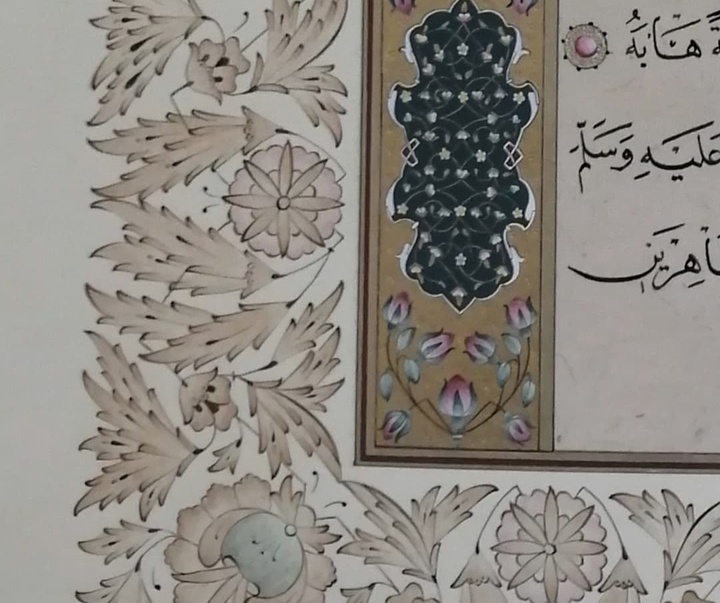 هَابَهُ
عَلَيْهِ وَسَلَّمَ
اهِرَينَ